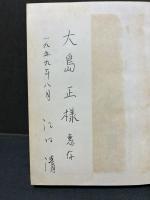 大島正様 恵存
一九五九年八月
江口清